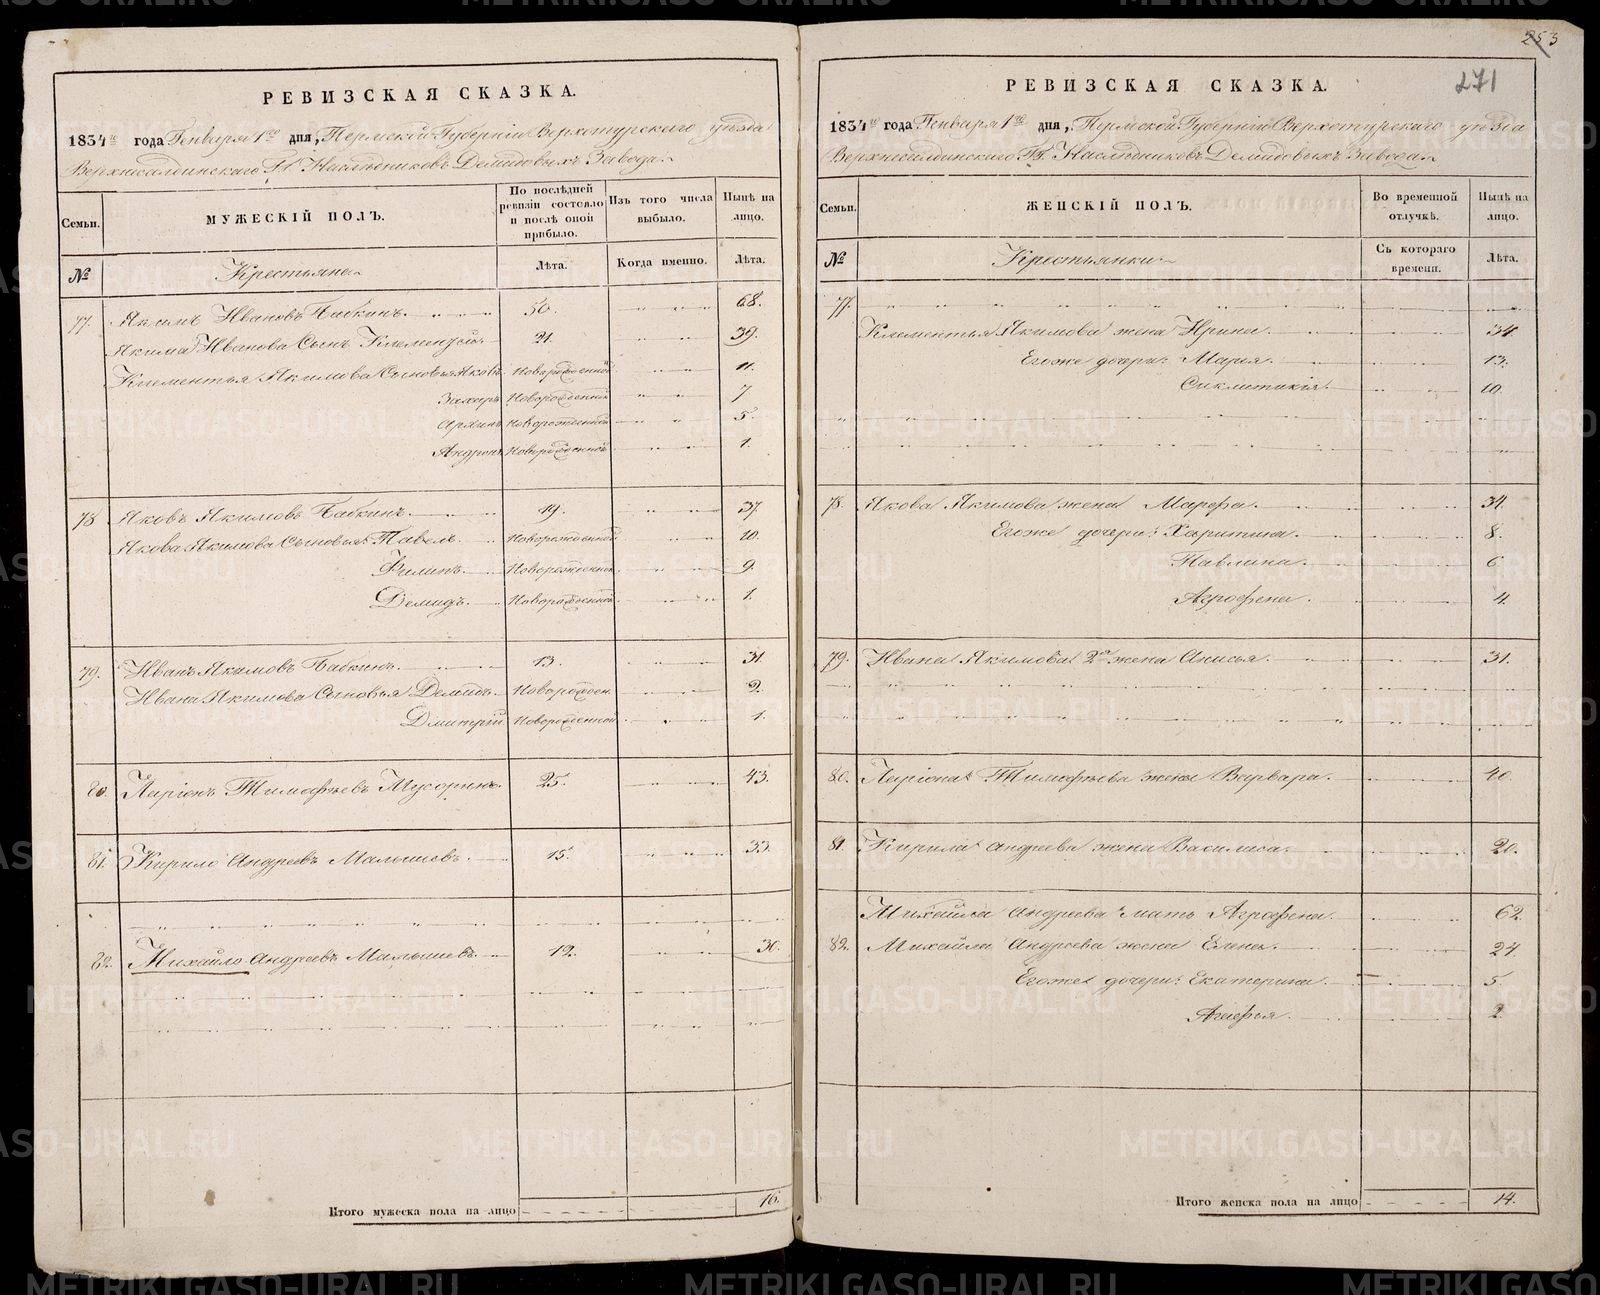 253
271
РЕВИЗСКАЯ СКАЗКА.
1834го года Генваря 1го дня, Пермской Губерніи Верхотурскаго уѣзда
Верхнесалдинскаго Гг. Наслѣдниковъ Демидовыхъ Завода.
Семьи.
МУЖЕСКІЙ ПОЛЪ.
По послѣдней ревизіи состояло и послѣ оной прибыло.
Изъ того числа выбыло.
Нынѣ на лицо.
№
Крестьяне
Лѣта.
Когда именно.
Лѣта.
77. Якимъ Ивановъ Бабкинъ. 50. 68.
Якима Иванова Сынъ Клементей 21. 39.
Клементья Якимова Сыновья Яковъ Новорожденной 11.
Захаръ Новорожденной 7
Архипъ Новорожденной 5.
Андрей Новорожденной 1.
78 Яковъ Якимовъ Бабкинъ. 19. 37
Якова Якимова Сыновья Павелъ Новорожденной 10.
Филипъ Новорожденной 9.
Демидъ. Новорожденной 1.
79. Иванъ Якимовъ Бабкинъ. 13. 31.
Ивана Якимова Сыновья Демидъ. Новорожден. 2.
Дмитрій Новорожденной 1.
80. Ларіонъ Тимофѣевъ Мусоринъ. 25. 43.
81. Кирило Андреевъ Малышевъ. 15. 33.
82. Михайло Андреевъ Малышевъ 12. 30.
Итого мужеска пола на лицо 16.
РЕВИЗСКАЯ СКАЗКА.
1834го года Генваря 1го дня, Пермской Губерніи Верхотурскаго уѣзда
Верхнесалдинскаго Гг. Наслѣдниковъ Демидовыхъ Завода.
Семьи.
ЖЕНСКІЙ ПОЛЪ.
Во временной отлучкѣ.
Нынѣ на лицо.
№
Крестьянки
Съ котораго времени.
Лѣта.
77.
Клементья Якимова жена Ирина. 34.
Егоже дочери: Марія. 13.
Сиклитикія. 10.
78. Якова Якимова жена Марфа. 34.
Егоже дочери: Харитина. 8.
Павлина. 6
Агрофена. 4.
79. Ивана Якимова 2я жена Анисья. 31.
80. Ларіона Тимофѣева жена Варвара. 40.
81. Кирила Андреева жена Василиса. 20.
Михайла Андреева мать Агрофена. 62.
82. Михайла Андреева жена Елена. 24.
Егоже дочери: Екатерина. 5
Агафья. 2.
Итого женска пола на лицо 14.
METRIKI.GASO-URAL.RU